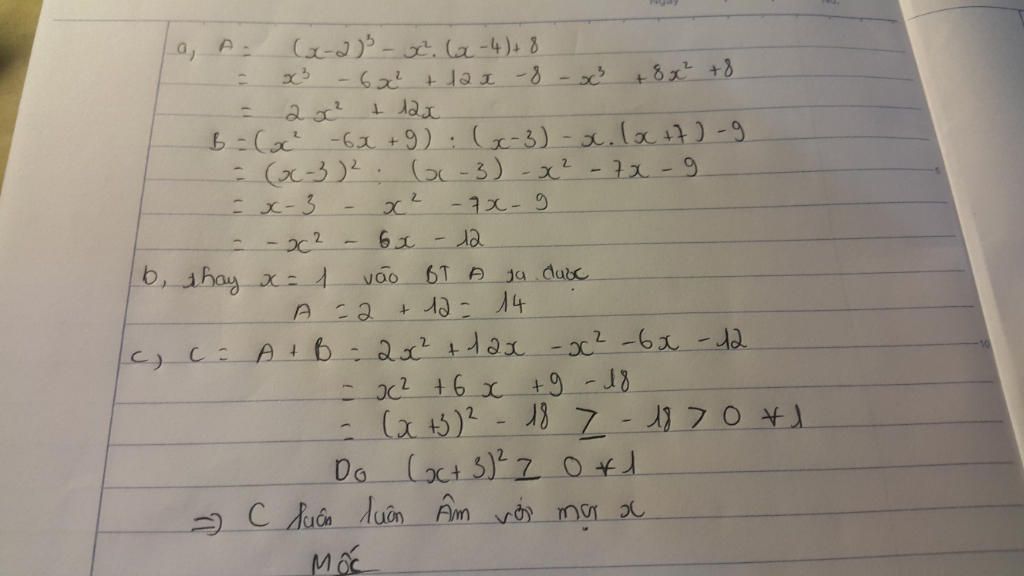 a, A = (x-2)³ - x². (x-4)+8
= x³ - 6x² + 12x - 8 - x³ + 8x² + 8
= 2x² + 12x
B = (x² - 6x + 9) : (x-3) - x. (x+7) - 9
= (x-3)² : (x-3) - x² - 7x - 9
= x-3 - x² - 7x - 9
= -x² - 6x - 12
b, thay x = 1 vào BT A ta được
A = 2 + 12 = 14
c, C = A + B = 2x² + 12x - x² - 6x - 12
= x² + 6x + 9 - 18
= (x+3)² - 18 ≥ -18 > 0 ∀1
Do (x+3)² ≥ 0 ∀1
⇒ C luôn luôn Âm với mọi x
MỐC